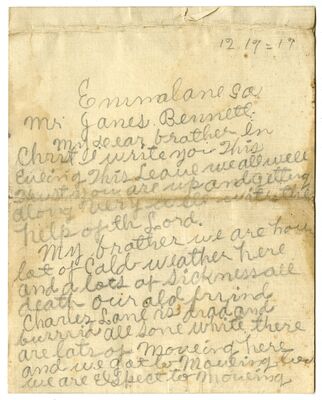 12 19=17
Emmalane Ga
Mr. Janes. Bennett.
My dear brother In
Christ I write you This
Eveing This Leave we all well
Trust you are up and getting
along very
help of th Lord.
My brother we are
lot of Cald weather here
and a lots of Sickness all
death our
Charles Lane is dead and
burrid all sone white there
are lots of Moveing here
and we got to Moveing
we are Espect to Moveing